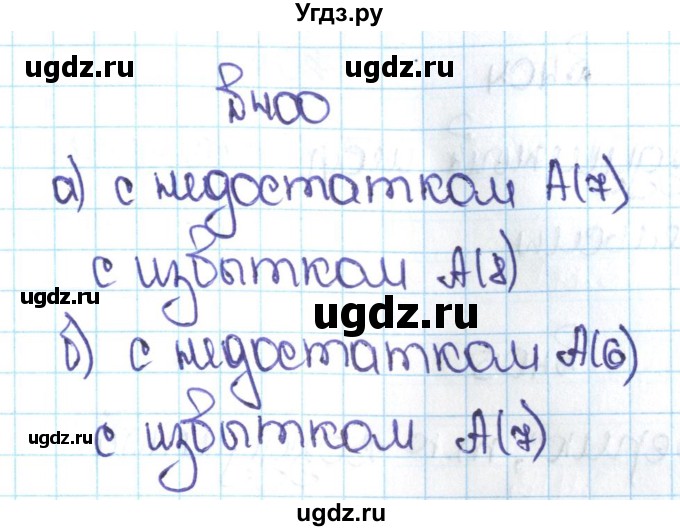 Угдз.ру
ugdz.ru ugdz.ru
№400
а) с недостатком А(7)
с избытком А(8)
ugdz.ru ugdz.ru
б) с недостатком А(6)
ugdz.ru с избытком А(7)
ugdz.ru ugdz.ru